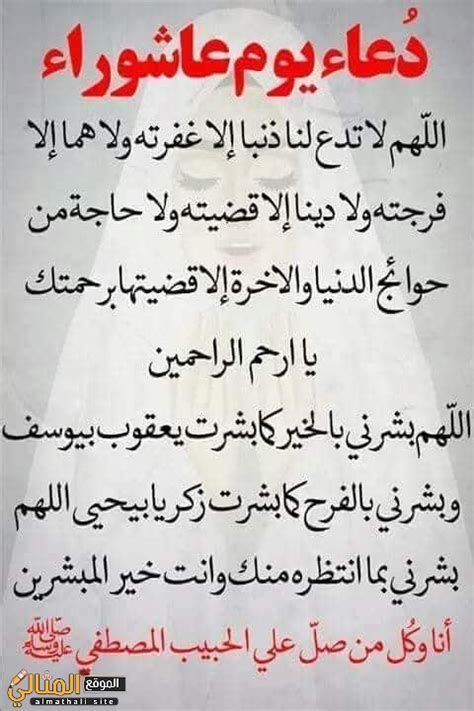 دُعاء يوم عاشوراء
اللّهم لا تدع لنا ذنبا إلا غفرته ولا هما إلا
فرجته ولا دينا إلا قضيته ولا حاجة من
حوائج الدنيا والاخرة إلا قضيتها برحمتك
يا ارحم الراحمين
اللهم بشرني بالخير كما بشرت يعقوب بيوسف
وبشرني بالفرح كما بشرت زكريا بيحيى اللهم
بشرني بما انتظره منك وانت خير المبشرين
أنا وكُل من صلّ علي الحبيب المصطفي ﷺ
الموقع المثالي
almathali site